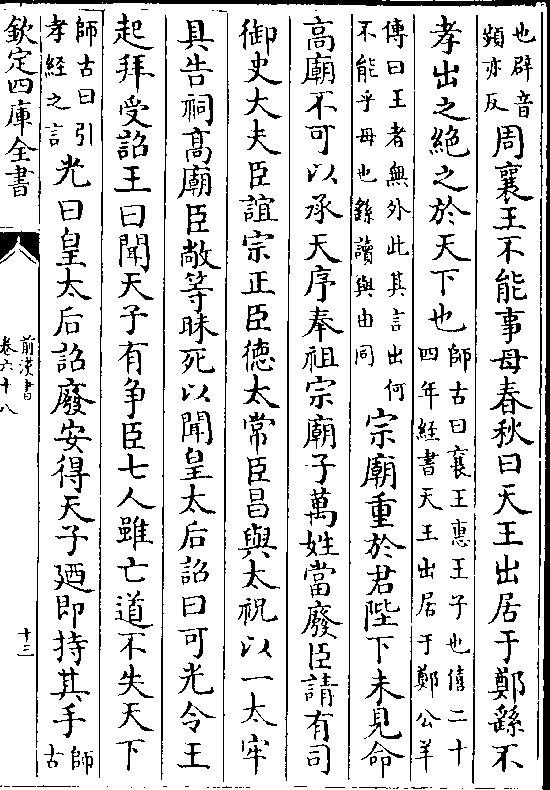 也辟音
頻亦反
周襄王不能事母春秋曰天王出居于鄭繇不
孝出之絶之於天下也
師古曰襄王惠王子也僖二十
四年經書天王出居于鄭公羊
傳曰王者無外此其言出何
不能乎母也繇讀與由同
宗廟重於君陛下未見命
高廟不可以承天序奉祖宗廟子萬姓當廢臣請有司
御史大夫臣誼宗正臣德太常臣昌與太祝以一太牢
具告祠高廟臣敞等昧死以聞皇太后詔曰可光令王
起拜受詔王曰聞天子有争臣七人雖亡道不失天下
師古曰引
孝經之言
光曰皇太后詔廢安得天子廼即持其手
師
古
欽定四庫全書
前漢書
卷六十八
十三